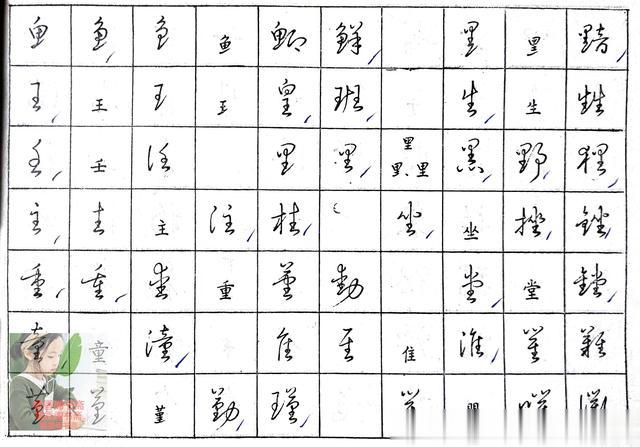 鱼 鱼 鱼 鱼 鲫 鲜 里 里 黯
王 王 王 王 皇 班 生 生 甡
壬 壬 任 里 里 里 里、里 黑 野 狸
主 主 主 注 桂 坐 坐 挫 锉
重 重 重 重 董 動 堂 堂 鏜
童 童 潼 隹 隹 隹 淮 難
堇 堇 堇 勤 瑾